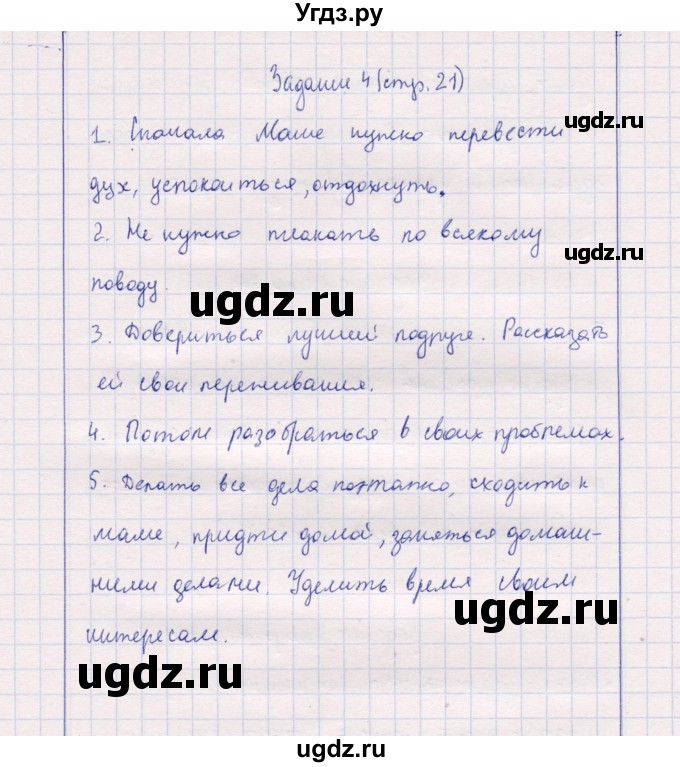 Угдз.ру
Задание 4 (стр. 21)
ugdz.ru
1. Сначала Маше нужно перевести
дух, успокоиться, отдохнуть.
2. Не нужно плакать по всякому
ugdz.ru
поводу.
ugdz.ru
3. Довериться лучшей подруге. Рассказать
ей свои переживания.
ugdz.ru
4. Потом разобраться в своих проблемах.
5. Делать все дела поэтапно, сходить к
маме, придти домой, заняться домаш-
ними делами. Уделить время своим
ugdz.ru
интересам.
ugdz.ru
ugdz.ru